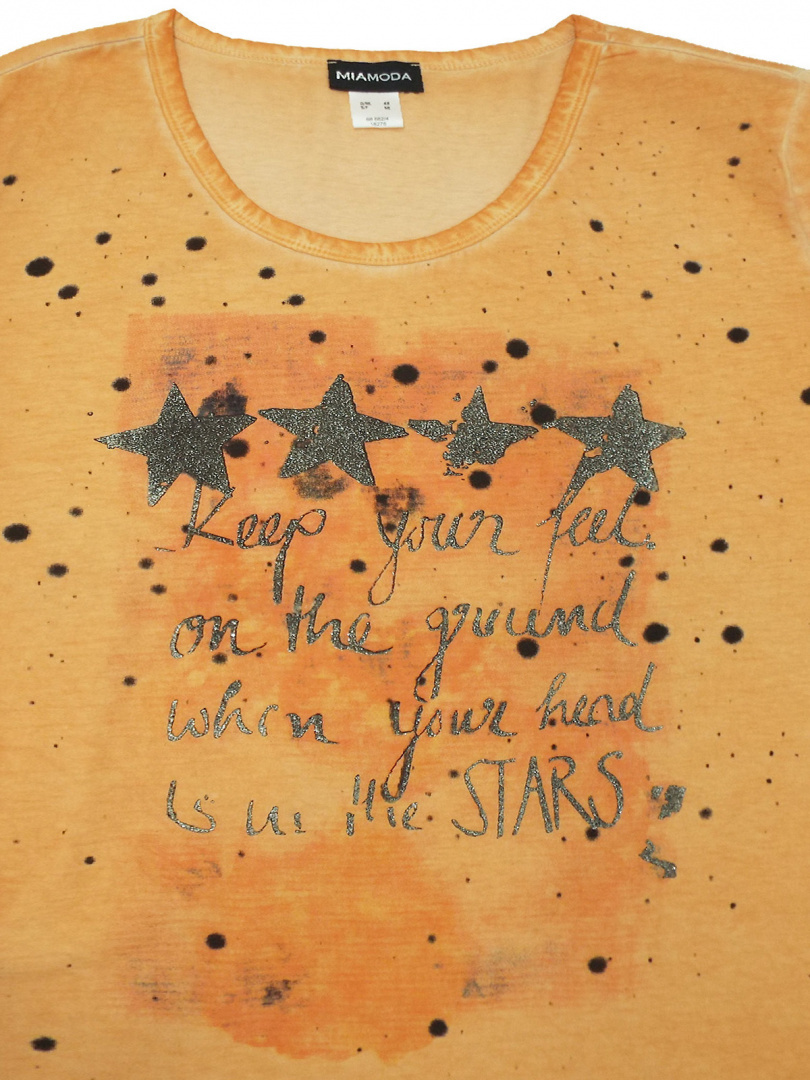 MIAMODA
Keep your feet
on the ground
when your head
is in the STARS